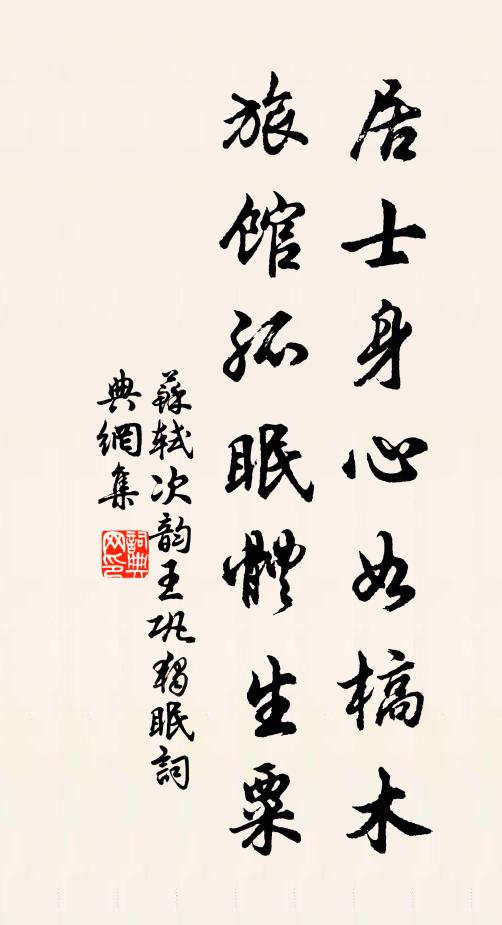 居士身心如槁木
旅館孤眠體生粟
蘇軾次韵王巩獨眠詞
典網集
詞典
网印